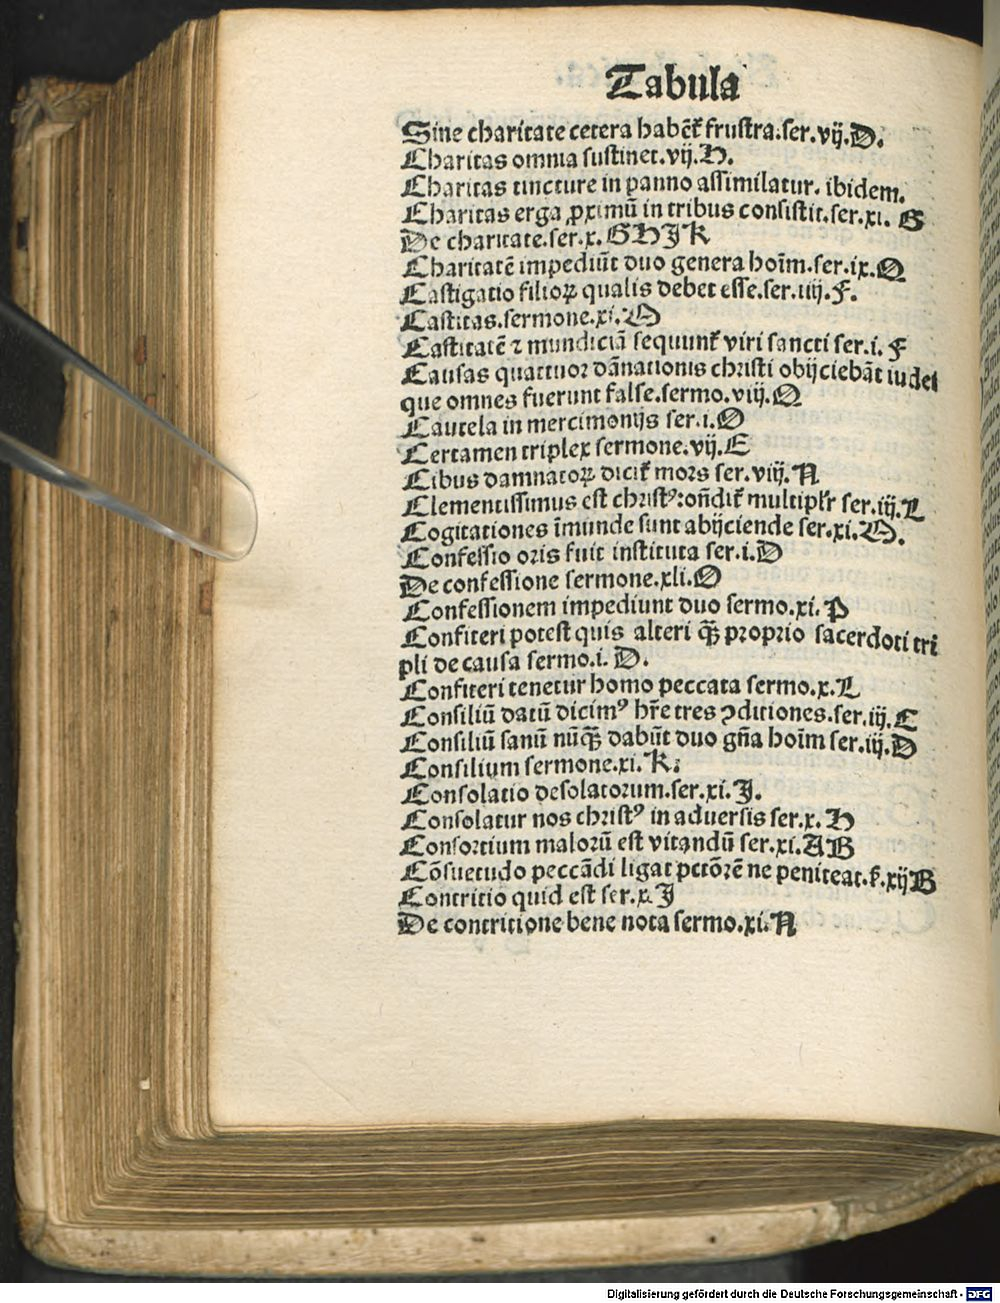 Tabula
Sine charitate cetera habēt᷑ frustra.ser.vij.D.
Charitas omnia sustinet.vij.H.
Charitas tincture in panno assimilatur. ibidem.
Charitas erga ꝓximū in tribus consistit.ser.xi. G
De charitate.ser.x.GHJK
Charitatē impediūt duo genera hoīm.ser.ix.Q
Castigatio filioꝝ qualis debet esse.ser.iiij.F.
Castitas.sermone.xi.O
Castitatē ⁊ mundiciā sequunt᷑ viri sancti ser.i. F
Causas quattuor dānationis christi obijciebāt iudei
que omnes fuerunt false.sermo.viij.Q
Cautela in mercimonijs ser.i.O
Certamen triplex sermone.vij.E
Cibus damnatoꝝ dicit᷑ mors ser.viij.N
Clementissimus est christꝰ:oñdit᷑ multiplr̄ ser.iij.L
Cogitationes īmunde sunt abijciende ser.xi.O.
Confessio oris fuit instituta ser.i.D
De confessione sermone.xli.O
Confessionem impediunt duo sermo.xi.P
Confiteri potest quis alteri qꝫ̄ proprio sacerdoti tri
pli de causa sermo.i. D.
Confiteri tenetur homo peccata sermo.x.L
Consiliū datū dicimꝰ hr̄e tres ꝯditiones.ser.iij.C
Consiliū sanū nūqꝫ̄ dabūt duo gn̄a hoīm ser.iij.D
Consilium sermone.xi.K:
Consolatio desolatorum.ser.xi.J.
Consolatur nos christꝰ in aduersis ser.x.H
Consortium malorū est vitandū ser.xi.AB
Cōsuetudo peccādi ligat pctōrē ne peniteat.ẜ.xijB
Contritio quid est ser.x.J
De contritione bene nota sermo.xi.N
Digitalisierung gefördert durch die Deutsche Forschungsgemeinschaft - DFG